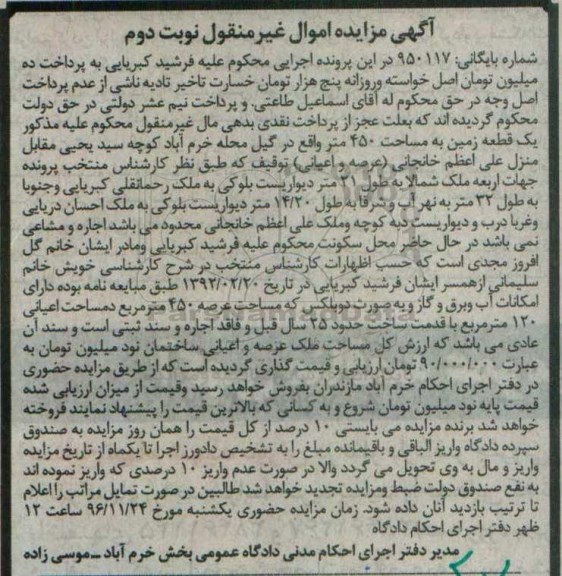 آگهی مزایده اموال غیرمنقول نوبت دوم
شماره بایگانی: ۹۵۰۱۱۷ در این پرونده اجرایی محکوم علیه فرشید کبریایی به پرداخت ده
میلیون تومان اصل خواسته وروزانه پنج هزار تومان خسارت تاخیر تادیه ناشی از عدم پرداخت
اصل وجه در حق محکوم له آقای اسماعیل طاعتی. و پرداخت نیم عشر دولتی در حق دولت
محکوم گردیده اند که بعلت عجز از پرداخت نقدی بدهی مال غیرمنقول محکوم علیه مذکور
یک قطعه زمین به مساحت ۴۵۰ متر واقع در گیل محله خرم آباد کوچه سید یحیی مقابل
منزل علی اعظم خانجانی (عرصه و اعیانی) توقیف که طبق نظر کارشناس منتخب پرونده
جهات اربعه ملک شمالا به طول متر دیواریست بلوکی به ملک رحمانقلی کبریایی وجنوبا
به طول ۳۲ متر به نهر آب وشرقا به طول ۱۴/۲۰ متر دیواریست بلوکی به ملک احسان دریایی
وغربا درب و دیواریست به کوچه وملک علی اعظم خانجانی محدود می باشد اجاره و مشاعی
نمی باشد در حال حاضر محل سکونت محکوم علیه فرشید کبریایی ومادر ایشان خانم گل
افروز مجدی است که حسب اظهارات کارشناس منتخب در شرح کارشناسی خویش خانم
سلیمانی ازهمسر ایشان فرشید کبریایی در تاریخ ۱۳۹۲/۰۲/۲۰ طبق مبایعه نامه بوده دارای
امکانات آب وبرق و گاز و به صورت دوبلکس که مساحت عرصه ۴۵۰ مترمربع دمساحت اعیانی
۱۲۰ مترمربع با قدمت ساخت حدود ۲۵ سال قبل و فاقد اجاره و سند ثبتی است و سند آن
عادی می باشد که ارزش کل مساحت ملک عرصه و اعیانی ساختمان نود میلیون تومان به
عبارت ۹۰/۰۰۰/۰۰۰ تومان ارزیابی و قیمت گذاری گردیده است که از طریق مزایده حضوری
در دفتر اجرای احکام خرم آباد مازندران بفروش خواهد رسید وقیمت از میزان ارزیابی شده
قیمت پایه نود میلیون تومان شروع و به کسانی که بالاترین قیمت را پیشنهاد نمایند فروخته
خواهد شد برنده مزایده می بایستی ۱۰ درصد از کل قیمت را همان روز مزایده به صندوق
سپرده دادگاه واریز الباقی و باقیمانده مبلغ را به تشخیص دادورز اجرا تا یکماه از تاریخ مزایده
واریز و مال به وی تحویل می گردد والا در صورت عدم واریز ۱۰ درصدی که واریز نموده اند
به نفع صندوق دولت ضبط ومزایده تجدید خواهد شد طالبین در صورت تمایل مراتب را اعلام
تا ترتیب بازدید آنان داده شود. زمان مزایده حضوری یکشنبه مورخ ۹۶/۱۱/۲۴ ساعت ۱۲
ظهر دفتر اجرای احکام دادگاه
مدیر دفتر اجرای احکام مدنی دادگاه عمومی بخش خرم آباد ــ موسی زاده